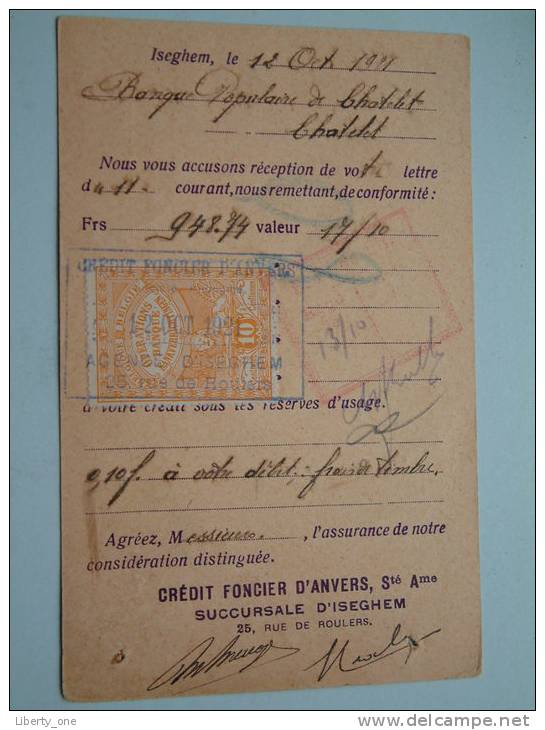 Iseghem, le 12 Oct 1921
Banque Populaire de Chatelet
Chatelet
Nous vous accusons réception de votre lettre
du 11. courant, nous remettant, de conformité :
Frs 948.74 valeur 17/10
CREDIT FONCIER D'ANVERS
12 OCT. 192
10
AGENCE D'ISEGHEM
25, rue de Roulers
13/10
à votre crédit sous les réserves d'usage.
0,10 f. à votre débit; frais de timbre.
Agréez, Messieurs, l'assurance de notre
considération distinguée.
CRÉDIT FONCIER D'ANVERS, Sté Ame
SUCCURSALE D'ISEGHEM
25, RUE DE ROULERS.
Liberty_one
delcampe.net